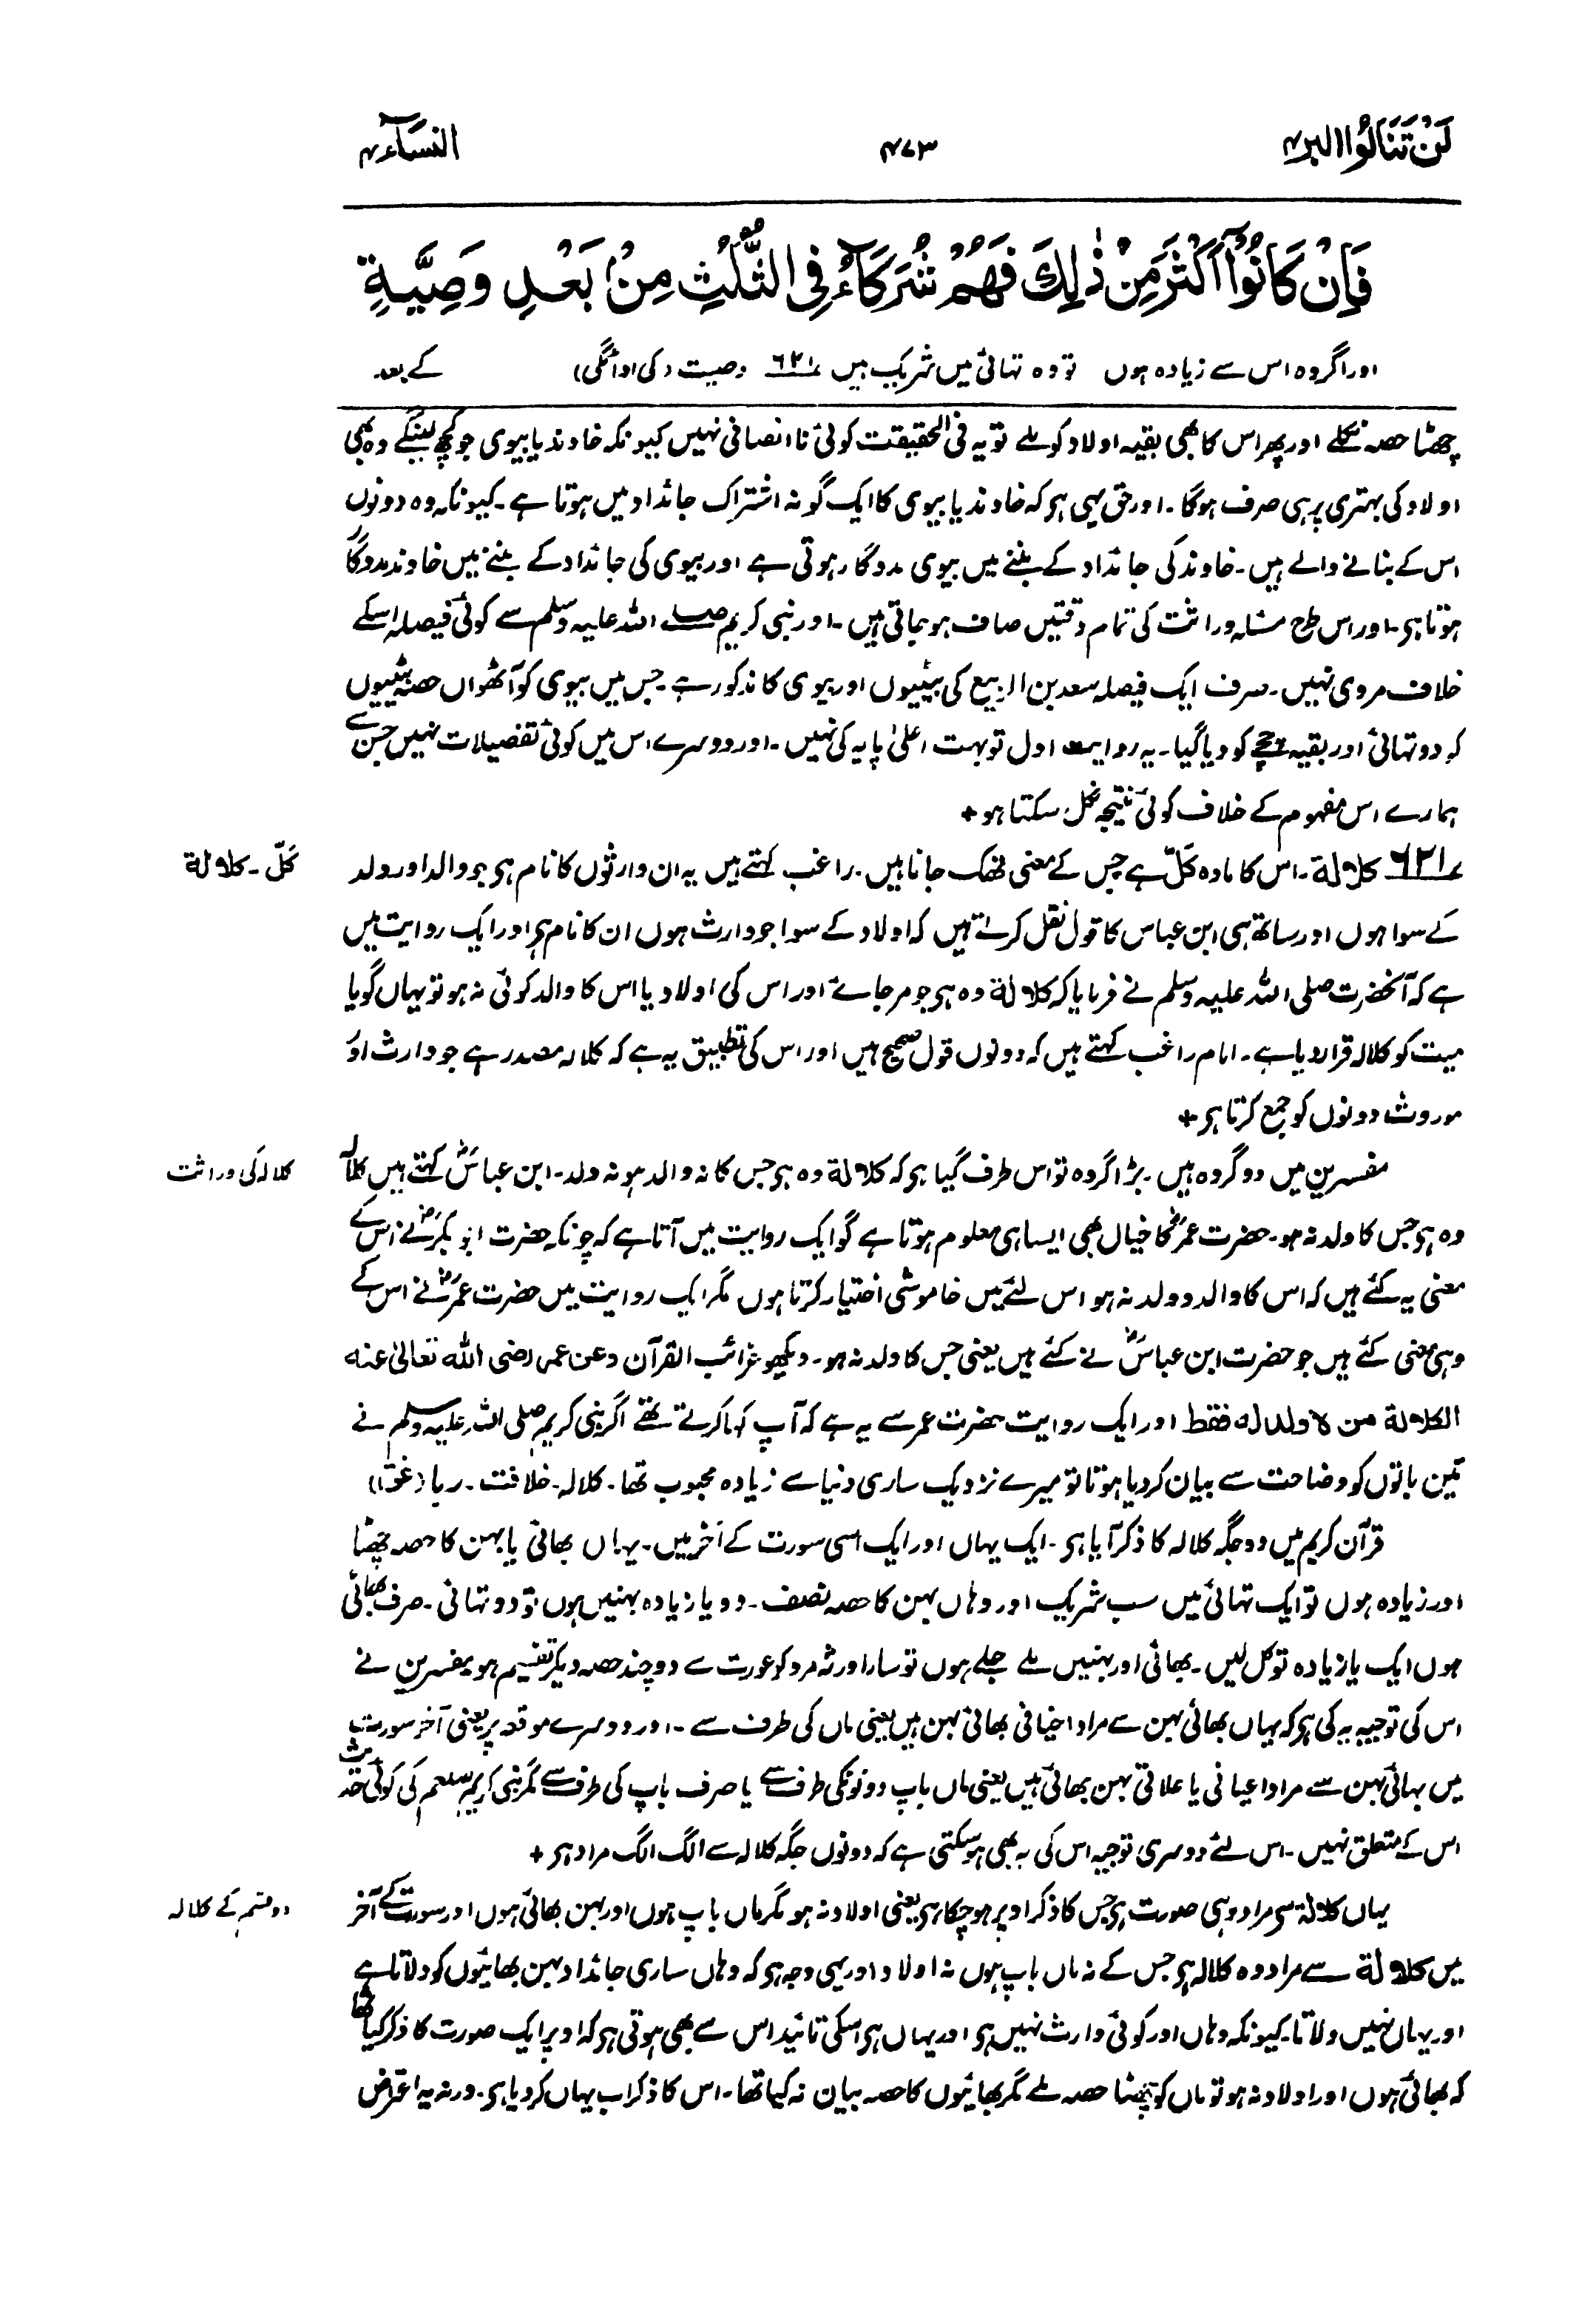 لَنْ تَنَالُوا البر ۴
۴۷۳
النسآء ۴
فَاِنْ كَانُوْٓا اَكْثَرَ مِنْ ذٰلِكَ فَهُمْ شُرَكَآءُ فِى الثُّلُثِ مِنْۢ بَعْدِ وَصِيَّةٍ
اور اگر وہ اس سے زیادہ ہوں تو وہ تہائی میں شریک ہیں ۶۲۱ وصیت (کی ادائگی) کے بعد
چھٹا حصہ نکلے اور پھر اس کا بھی بقیہ اولاد کو ملے تو یہ فی الحقیقت کوئی نا انصافی نہیں کیونکہ خاوند یا بیوی جو کچھ لینگے وہ بھی
اولاد کی بہتری پر ہی صرف ہوگا۔ اور حق یہی ہو کہ خاوند یا بیوی کا ایک گونہ اشتراک جائداد میں ہوتا ہے۔ کیونکہ وہ دونوں
اس کے بنانے والے ہیں۔ خاوند کی جائداد کے بننے میں بیوی مددگار ہوتی ہے اور بیوی کی جائداد کے بننے میں خاوند مددگار
ہوتا ہو۔ اور اس طرح مسئلہ وراثت کی تمام دقتیں صاف ہو جاتی ہیں۔ اور نبی کریم صلے اللہ علیہ وسلم سے کوئی فیصلہ اسکے
خلاف مروی نہیں۔ صرف ایک فیصلہ سعد بن الربیع کی بیٹیوں اور بیوی کا مذکور ہے۔ جس میں بیوی کو آٹھواں حصہ بیٹیوں
کو دو تہائی اور بقیہ چچے کو دیا گیا۔ یہ روایت اول تو بہت اعلیٰ پایہ کی نہیں۔ اور دوسرے اس میں کوئی تفصیلات نہیں جن سے
ہمارے اس مفہوم کے خلاف کوئی نتیجہ نکل سکتا ہو +
۶۲۱ كلالة۔ اس کا مادہ كَلَّ ہے جس کے معنی تھک جانا ہیں۔ راغب کہتے ہیں یہ ان وارثوں کا نام ہو جو والد اور ولد
كَلّ۔ كلالة
کے سوا ہوں اور ساتھ ہی ابن عباس کا قول نقل کرتے ہیں کہ اولاد کے سوا جو وارث ہوں ان کا نام ہو اور ایک روایت میں
ہے کہ آنحضرت صلی اللہ علیہ وسلم نے فرمایا کہ كلالة وہ ہو جو مر جائے اور اس کی اولاد یا اس کا والد کوئی نہ ہو تو یہاں گویا
میت کو کلالہ قرار دیا ہے۔ امام راغب کہتے ہیں کہ دونوں قول صحیح ہیں اور اس کی تطبیق یہ ہے کہ کلالہ مصدر ہے جو وارث اور
موروث دونوں کو جمع کرتا ہو +
مفسرین میں دو گروہ ہیں۔ بڑا گروہ تو اس طرف گیا ہو کہ كلالة وہ ہو جس کا نہ والد ہو نہ ولد۔ ابن عباسؓ کہتے ہیں کلالہ
کلالہ کی وراثت
وہ ہو جس کا ولد نہ ہو۔ حضرت عمرؓ کا خیال بھی ایسا ہی معلوم ہوتا ہے گو ایک روایت میں آتا ہے کہ چونکہ حضرت ابوبکرؓ نے اس کے
معنی یہ کئے ہیں کہ اس کا والد و ولد نہ ہو اس لئے میں خاموشی اختیار کرتا ہوں مگر ایک روایت میں حضرت عمرؓ نے اس کے
وہی معنی کئے ہیں جو حضرت ابن عباسؓ نے کئے ہیں یعنی جس کا ولد نہ ہو۔ دیکھو غرائب القرآن وعن عمر رضى الله تعالىٰ عنه
الكلالة من لا ولد له فقط اور ایک روایت حضرت عمر سے یہ ہے کہ آپ کہا کرتے تھے اگر نبی کریم صلی اللہ علیہ وسلم نے
تین باتوں کو وضاحت سے بیان کر دیا ہوتا تو میرے نزدیک ساری دنیا سے زیادہ محبوب تھا۔ کلالہ۔ خلافت۔ ربا (غق)
قرآن کریم میں دو جگہ کلالہ کا ذکر آیا ہو۔ ایک یہاں اور ایک اسی سورت کے آخر میں۔ یہاں بھائی یا بہن کا حصہ چھٹا
اور زیادہ ہوں تو ایک تہائی میں سب شریک اور وہاں بہن کا حصہ نصف۔ دو یا زیادہ بہنیں ہوں تو دو تہائی۔ صرف بھائی
ہوں ایک یا زیادہ تو کل لیں۔ بھائی اور بہنیں ملے جلے ہوں تو سارا ورثہ مرد کو عورت سے دو چند حصہ دیکر تقسیم ہو مفسرین نے
اس کی توجیہ یہ کی ہو کہ یہاں بھائی بہن سے مراد اخیافی بھائی بہن ہیں یعنی ماں کی طرف سے۔ اور دوسرے موقعہ پر یعنی آخر سورت
میں بہائی بہن سے مراد اعیانی یا علاتی بہن بھائی ہیں یعنی ماں باپ دونوکی طرف سے یا صرف باپ کی طرف سے مگر نبی کریم صلعم کی کوئی حدیث
اس کے متعلق نہیں۔ اس لئے دوسری توجیہ اس کی یہ بھی ہو سکتی ہے کہ دونوں جگہ کلالہ سے الگ الگ مراد ہو +
یہاں كلالة سے مراد وہی صورت ہو جس کا ذکر اوپر ہو چکا ہو یعنی اولاد نہ ہو مگر ماں باپ ہوں اور بہن بھائی ہوں اور سورت کے آخر
دو قسم کے کلالہ
میں كلالة سے مراد وہ کلالہ ہو جس کے نہ ماں باپ ہوں نہ اولاد اور یہی وجہ ہو کہ وہاں ساری جائداد بہن بھائیوں کو دلاتا ہے
اور یہاں نہیں دلاتا۔ کیونکہ وہاں اور کوئی وارث نہیں ہو اور یہاں ہو اسکی تائید اس سے بھی ہوتی ہو کہ اوپر ایک صورت کا ذکر کیا تھا
کہ بھائی ہوں اور اولاد نہ ہو تو ماں کو چھٹا حصہ ملے مگر بھائیوں کا حصہ بیان نہ کیا تھا۔ اس کا ذکر اب یہاں کر دیا ہو۔ ورنہ یہ اعتراض